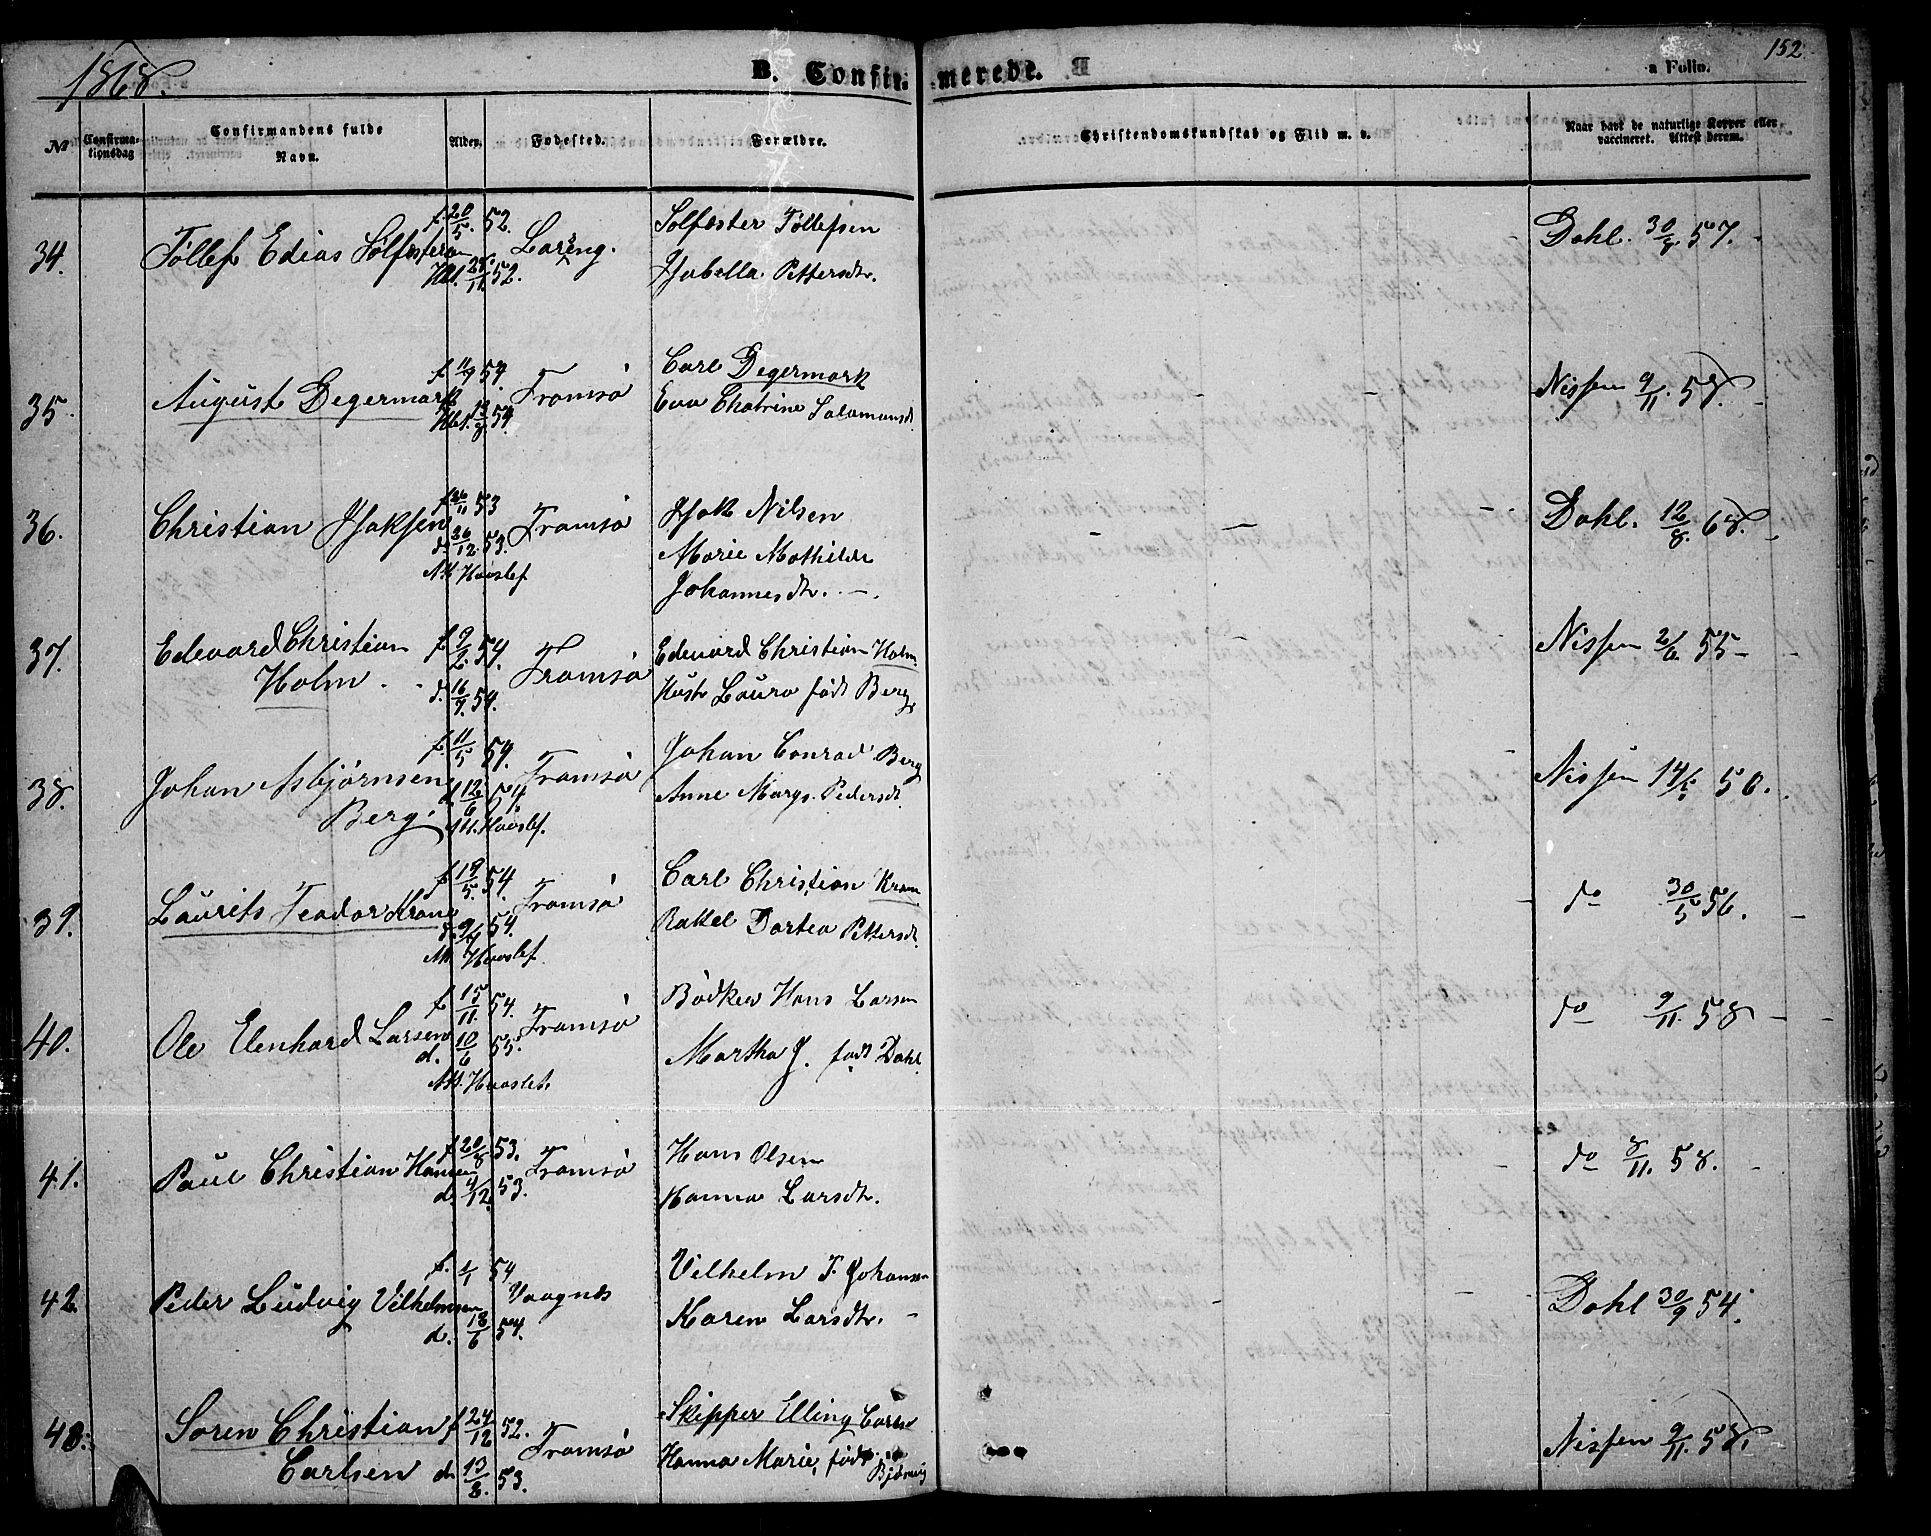 1868.
B. Confir-
merede.
152
a Folio.
№
Confirma-
tionsdag
Confirmandens fulde
Navn.
Alder.
Fødested.
Forældre.
Christendomskundskab og Flid m. v.
Naar havt de naturlige Kopper eller
vaccineret. Attest derom.
34.
Tøllef Edias Sølfestersen
f. 20/5. 52.
52.
Solfester Tøllefsen
Isabella Pettersdtr.
Dahl. 30/8 57.
35.
August Degermark
f. 11/9 54
Tromsø
Carl Degermark
Eva Chatrine Salamonsd.
Nissen 9/11. 58.
36.
Christian Isaksen
f. 26/11 53
d. 26/12. 53.
Hovslef
Tromsø
Isak Nilsen
Marie Mathilde
Johannesdtr.
Dahl. 12/8. 68.
37.
Edevard Christian
Holm.
f. 9/2. 54.
d. 16/7. 54.
Tromsø
Edevard Christian Holm
Hustr Laura født Berg
Nissen 2/6. 55
38.
Johan Asbjørnsen
Berg.
f. 11/5 54.
d. 12/6 54
Hovslef.
Tromsø
Johan Conrad Berg
Anne Margr. Pedersdt.
Nissen
39.
Laurits Teodor Krane
f. 19/5. 54
54.
Hovslef
Tromsø
Carl Christian Kran
Rakel Dortea Pettersdt.
do 30/5 56.
40.
Ole Elenhard Larsen
f. 15/11. 54.
d. 10/6 55.
Hovslet.
Tromsø
Bødker Hans Larsen
Martha J. født Dahl
do 9/11. 58
41.
Paul Christian Hansen
f. 20/8 53.
d. 4/12. 53.
Tromsø
Hans Olsen
Hanna Larsdtr.
do 8/11. 58.
42
Peder Ludvig Vilhelmsen
f. 1/1 54
d. 18/6 54.
Vaagnes
Vilhelm T. Johansen
Karen Larsdtr.
Dahl 30/9 54.
43.
Soren Christian
Carlsen
f. 24/12 52.
d. 13/3. 53.
Tromsø
Skipper Elling Carls
Hanna Marie, født
Bjørnvig
Nissen 9/11. 58.